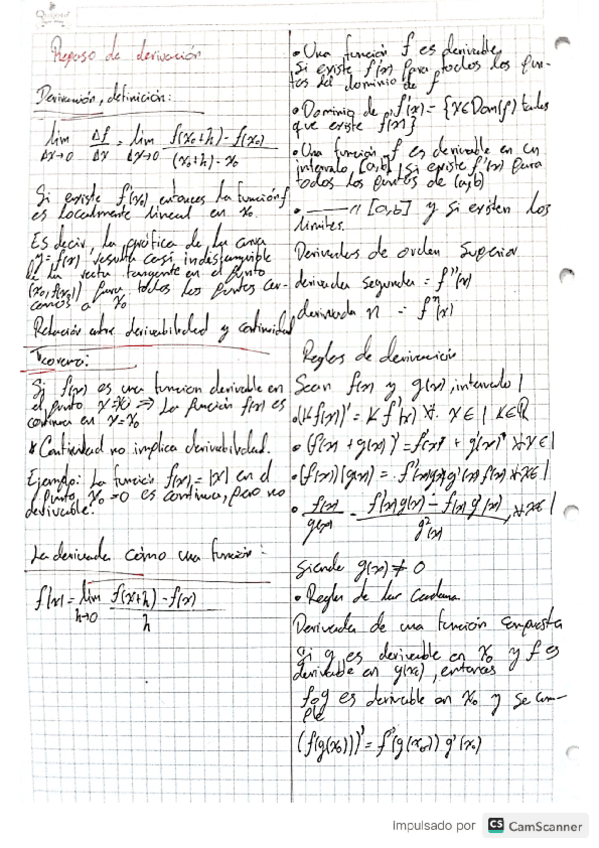 Repaso de derivación
Derivación, definición:
lim Δf = lim f(x₀+h) - f(x₀)
Δx→0 Δx Δx→0 (x₀+h) - x₀
Si existe f'(x₀), entonces la función f
es localmente lineal en x₀.
Es decir, la gráfica de la curva
y = f(x) resulta casi indistinguible
de la recta tangente en el punto
(x₀, f(x₀)) para todos los puntos cer-
canos a x₀
Relación entre derivabilidad y continuidad
Teorema:
Si f(x) es una funcion derivable en
el punto x=x₀ ⇒ La función f(x) es
continua en x=x₀
* Continuidad no implica derivabilidad.
Ejemplo: La función f(x) = |x| en el
punto x₀ = 0 es continua, pero no
derivable.
La derivada como una función:
f'(x) = lim f(x+h) - f(x)
h→0 h
• Una función f es derivable
si existe f'(x) para todos los pun-
tos del dominio de f
• Dominio de f'(x) = {x∈Dom(f) tales
que existe f'(x)}
• Una función f es derivable en un
intervalo [a,b] si existe f'(x) para
todos los puntos de (a,b)
• ——— 11 [a,b] y si existen los
límites.
Derivadas de orden superior
derivada segunda = f''(x)
derivada n = fⁿ(x)
Reglas de derivación
Sean f(x) y g(x), intervalo I
• (K f(x))' = K f'(x) ∀ x∈I K∈ℝ
• (f(x) + g(x))' = f'(x) + g'(x) ∀x∈I
• (f(x))(g(x)) = f'(x)g(x) g'(x) f(x) ∀x∈I
• f(x) = f'(x)g(x) - f(x)g'(x), ∀x∈I
g(x) g²(x)
Siendo g(x) ≠ 0
• Regla de la Cadena
Derivada de una función compuesta
Si g es derivable en x₀ y f es
derivable en g(x₀), entonces
f∘g es derivable en x₀ y se cum-
ple
(f(g(x₀)))' = f'(g(x₀)) g'(x₀)
Impulsado por CS CamScanner